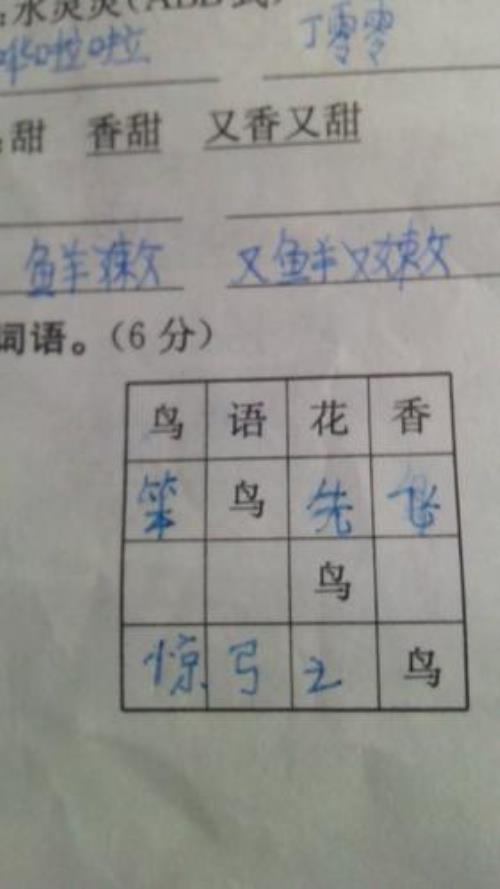 水灵灵(ABB式)
啦啦 丁零零
甜 香甜 又香又甜
鲜嫩 又鲜又嫩
词语。(6分)
鸟语花香
笨鸟先飞
鸟
惊弓之鸟